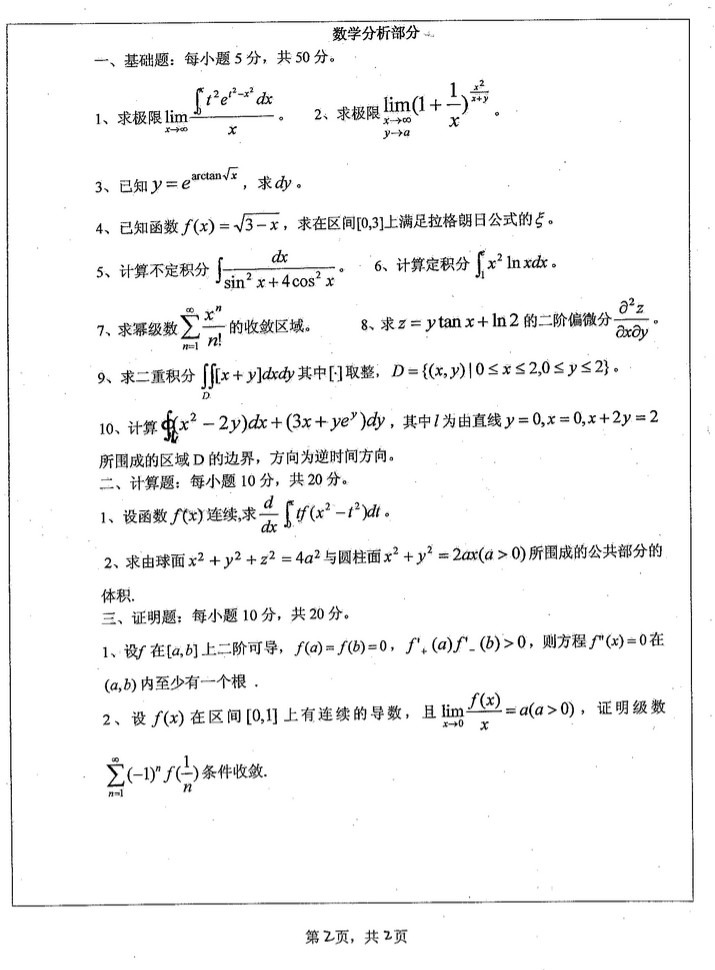 数学分析部分
一、基础题：每小题 5 分，共 50 分。
1、求极限 $\lim\limits_{x\to\infty}\dfrac{\int_0^x t^2e^{t^2-x^2}dx}{x}$。 2、求极限 $\lim\limits_{\substack{x\to\infty\\y\to a}}(1+\dfrac{1}{x})^{\frac{x^2}{x+y}}$。
3、已知 $y=e^{\arctan\sqrt{x}}$，求 $dy$。
4、已知函数 $f(x)=\sqrt{3-x}$，求在区间[0,3]上满足拉格朗日公式的 $\xi$。
5、计算不定积分 $\int\dfrac{dx}{\sin^2x+4\cos^2x}$。 6、计算定积分 $\int_1^e x^2\ln xdx$。
7、求幂级数 $\sum\limits_{n=1}^{\infty}\dfrac{x^n}{n!}$ 的收敛区域。 8、求 $z=y\tan x+\ln 2$ 的二阶偏微分 $\dfrac{\partial^2z}{\partial x\partial y}$。
9、求二重积分 $\iint\limits_D[x+y]dxdy$ 其中[·]取整，$D=\{(x,y)|0\le x\le 2,0\le y\le 2\}$。
10、计算 $\oint_l(x^2-2y)dx+(3x+ye^y)dy$，其中 $l$ 为由直线 $y=0,x=0,x+2y=2$
所围成的区域 D 的边界，方向为逆时间方向。
二、计算题：每小题 10 分，共 20 分。
1、设函数 $f(x)$ 连续,求 $\dfrac{d}{dx}\int_0^x tf(x^2-t^2)dt$。
2、求由球面 $x^2+y^2+z^2=4a^2$ 与圆柱面 $x^2+y^2=2ax(a>0)$ 所围成的公共部分的
体积.
三、证明题：每小题 10 分，共 20 分。
1、设 $f$ 在 $[a,b]$ 上二阶可导，$f(a)=f(b)=0$，$f'_+(a)f'_-(b)>0$，则方程 $f''(x)=0$ 在
$(a,b)$ 内至少有一个根．
2、设 $f(x)$ 在区间 $[0,1]$ 上有连续的导数，且 $\lim\limits_{x\to0}\dfrac{f(x)}{x}=a(a>0)$，证明级数
$\sum\limits_{n=1}^{\infty}(-1)^nf(\dfrac{1}{n})$ 条件收敛.
第2页，共2页